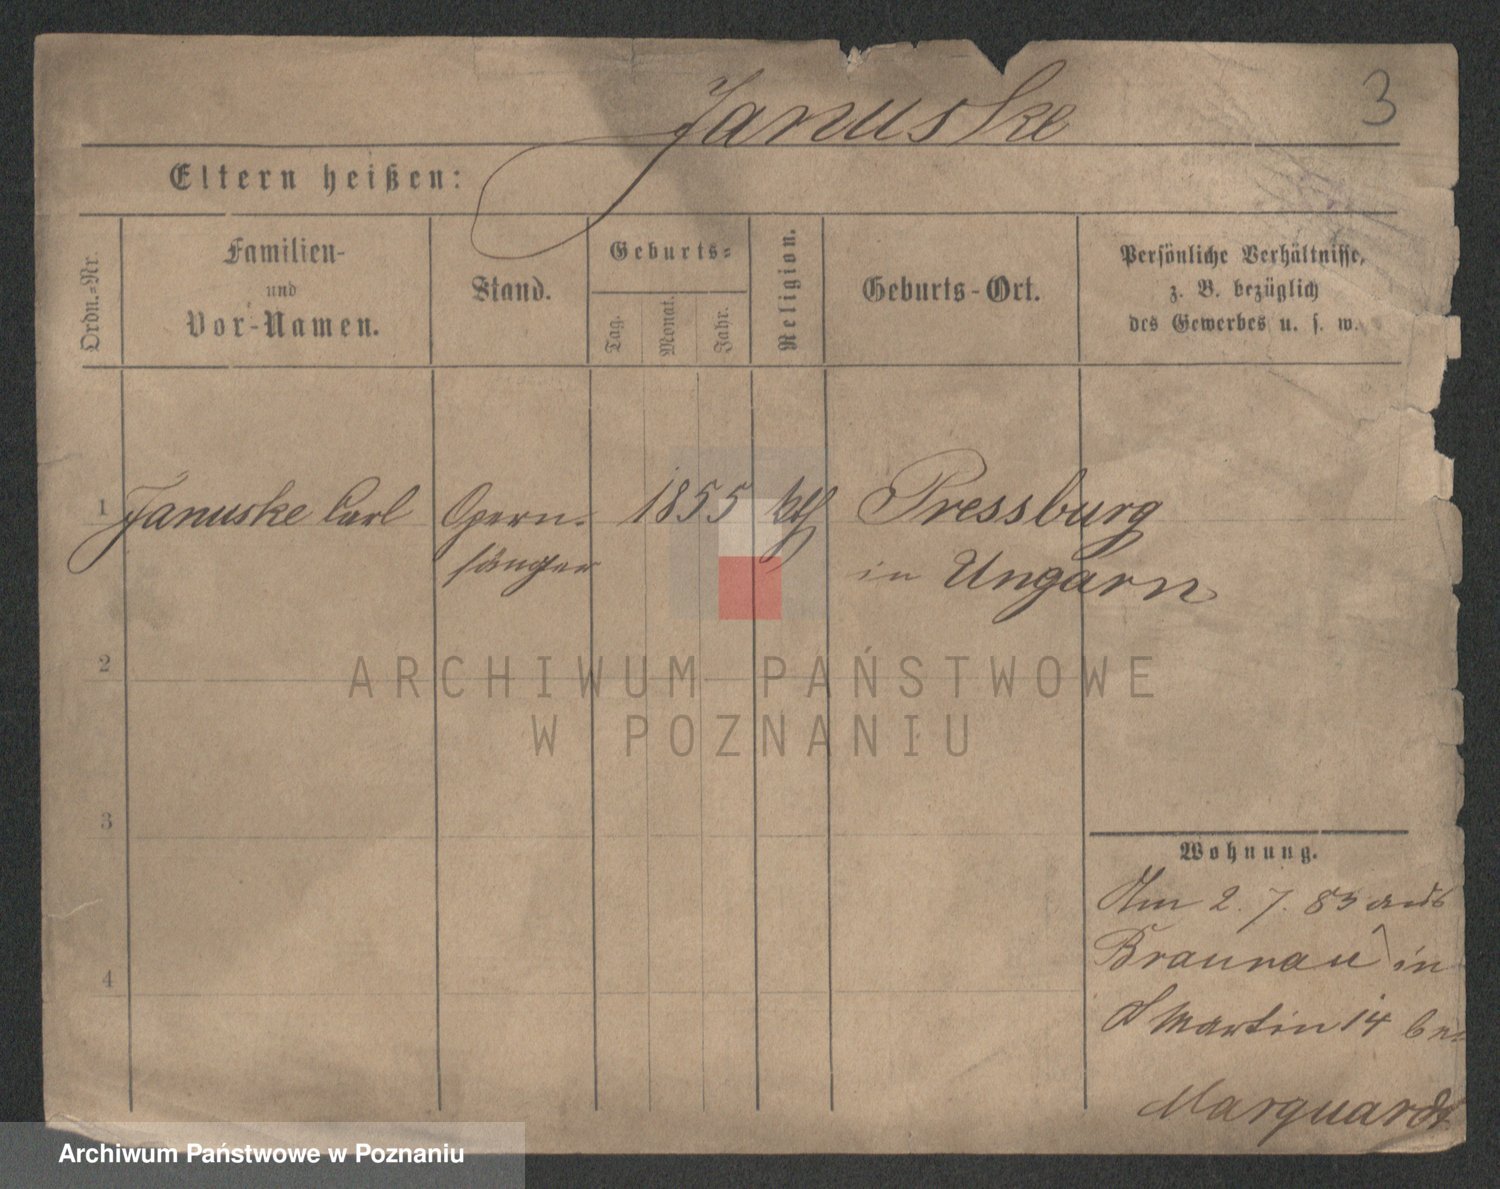 Januske
3
Eltern heißen:
Ordn.-Nr.
Familien-
und
Vor-Namen.
Stand.
Geburts-
Tag.
Monat.
Jahr.
Religion.
Geburts-Ort.
Persönliche Verhältnisse,
z. B. bezüglich
des Gewerbes u. s. w.
1 Januske Carl Opern- 1855 kth Pressburg
sänger in Ungarn
2
ARCHIWUM PAŃSTWOWE
W POZNANIU
3
4
Wohnung.
Am 2. 7. 83 aus
Braunau in
St Martin 14 bei
Marquardt
Archiwum Państwowe w Poznaniu